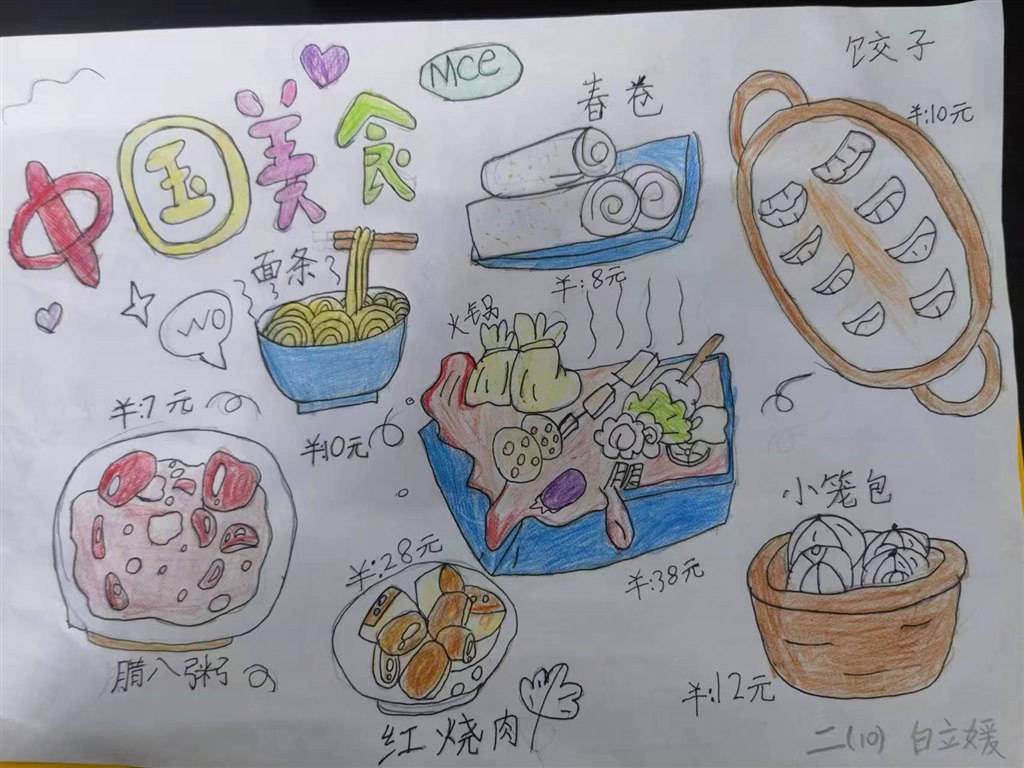 中国美食
Mce
春卷
饺子
羊:10元
面条
羊:8元
wo
火锅
羊:7元
羊:10元
小笼包
羊:28元
羊:38元
腊八粥
羊:12元
红烧肉
二(10) 白立媛